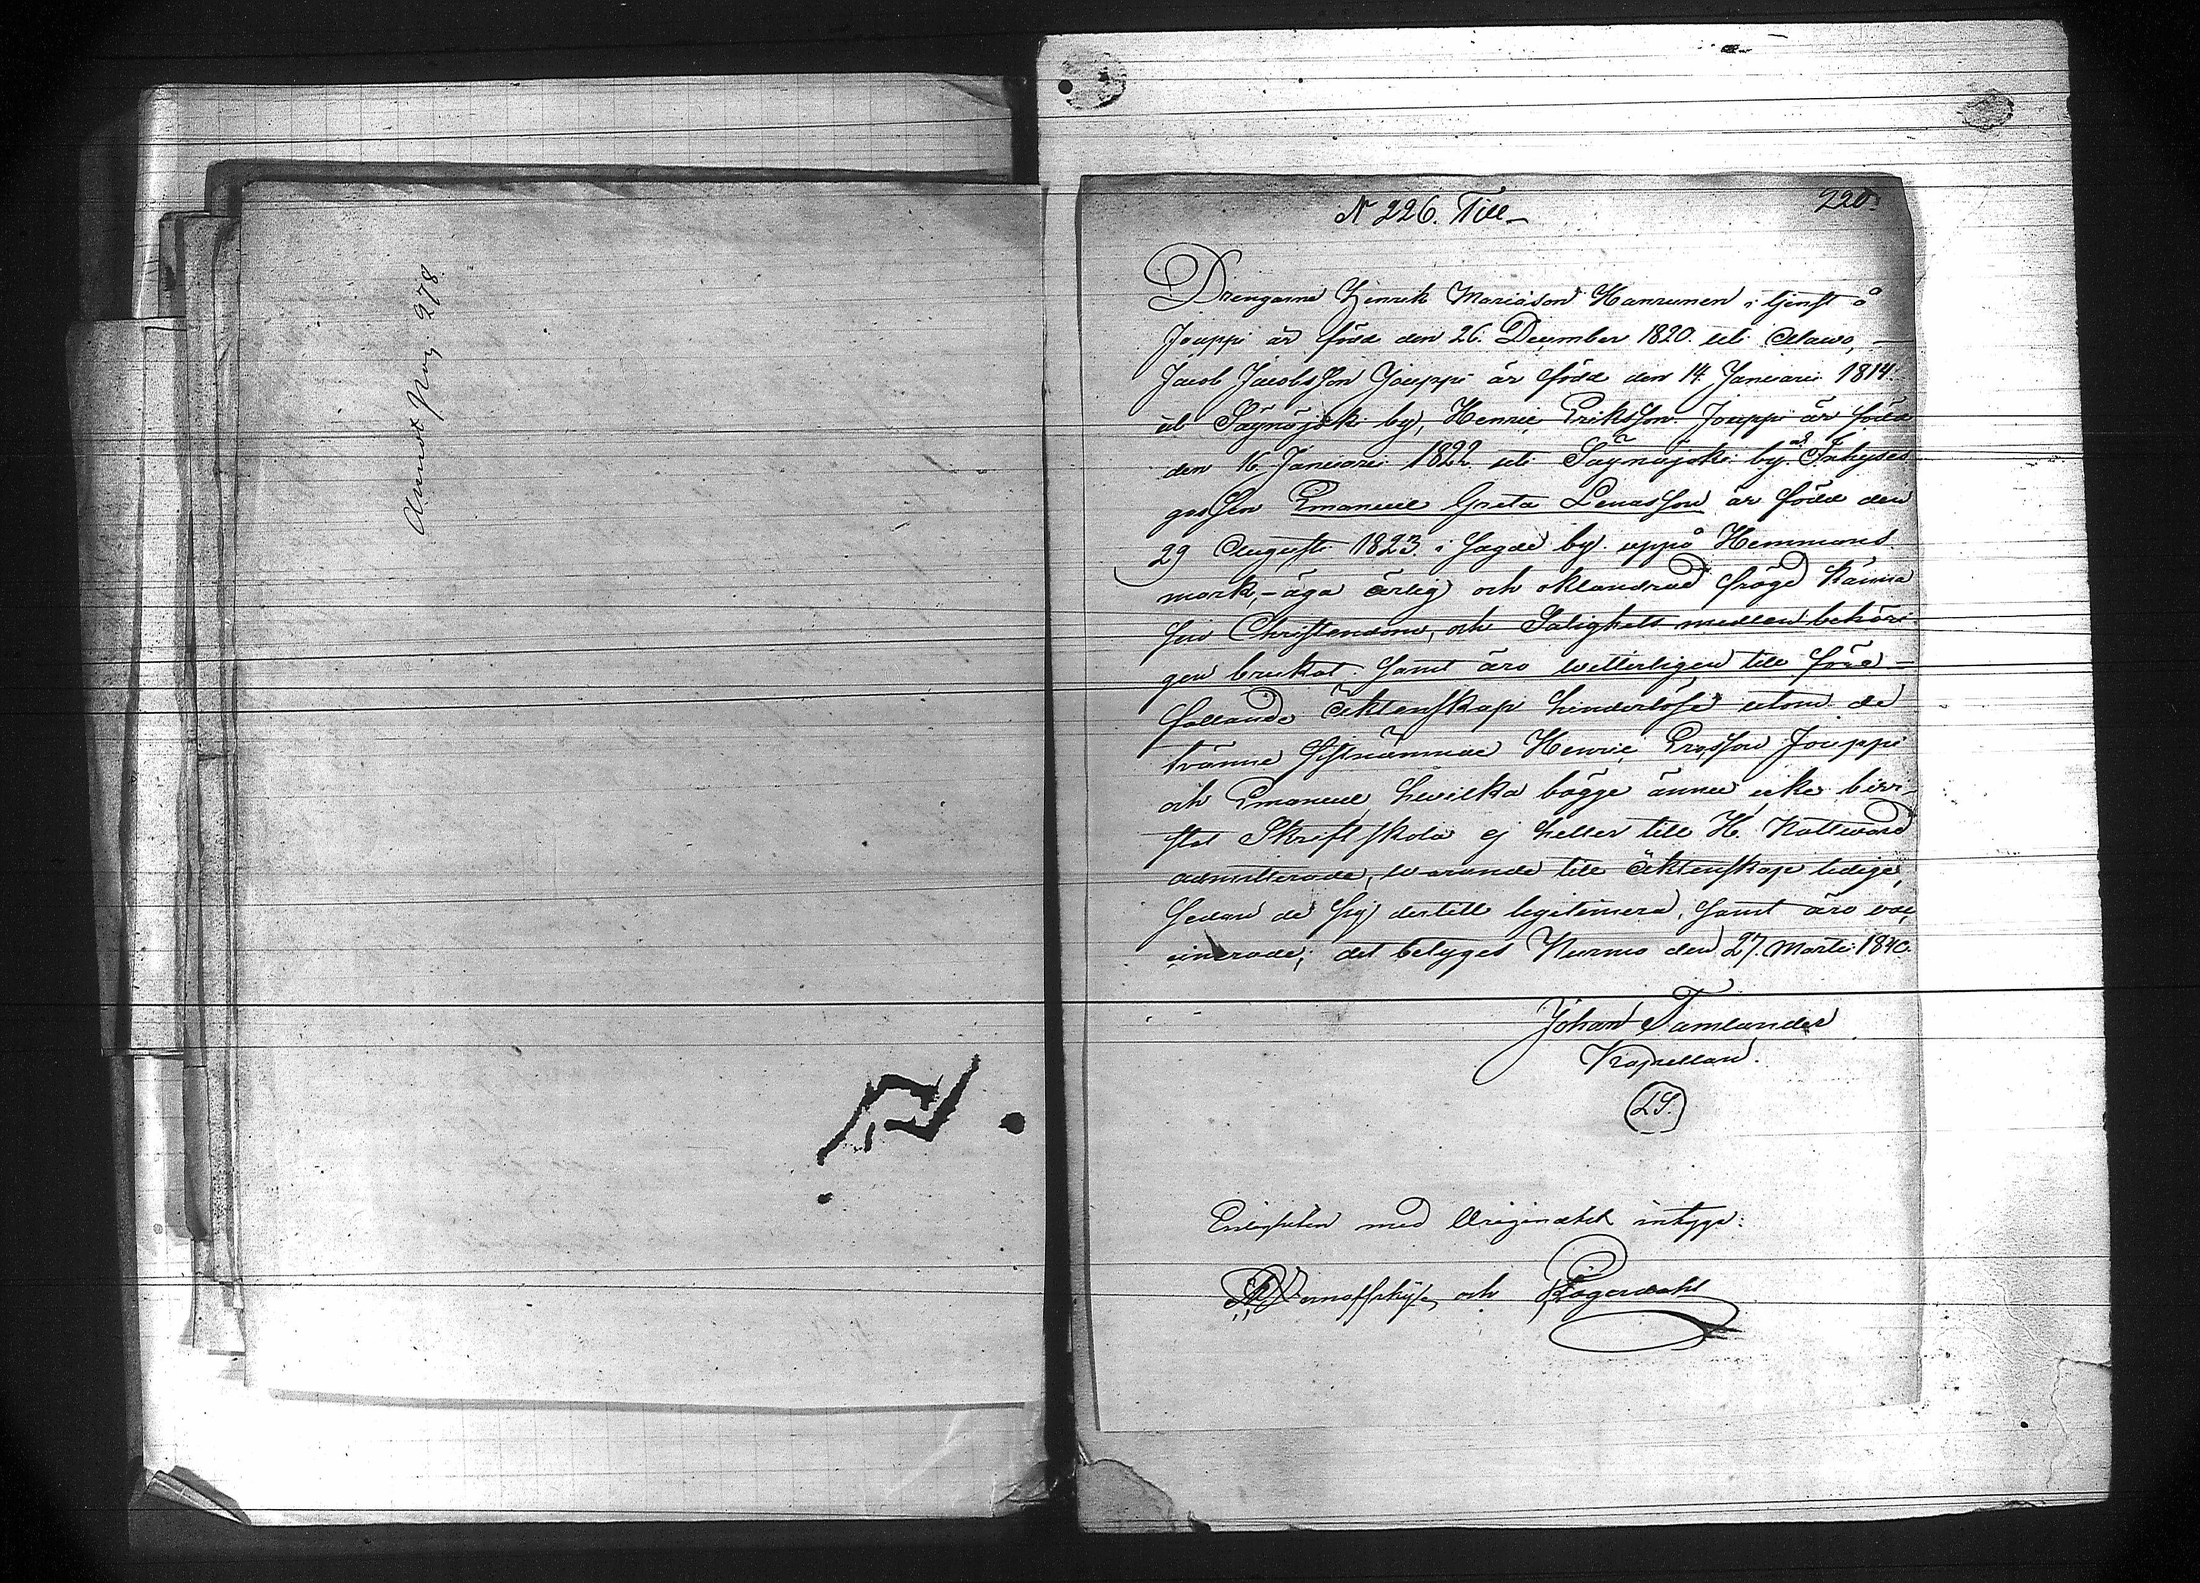 Anno Nov. 278
N 226. Till
220.
Drengarna Henrik Mariäson Hanrunen i tjenst å
Jouppi är född den 26. December 1820. uti Alawo,
Jacob Jacobsson Jouppi är född den 14 Januarii 1814.
uti Säynäjoki by, Henric Eriksson Jouppi är född
den 16 Januarii 1822. uti Säynäjoki by. & Inhyses
gossen Emanuel Greta Lenasson är född den
29 Augusti 1823 i sagde by. uppå Hemmans
mark, - äga ärlig och oklandrad frägd känna
sin Christendom, och Salighets medlen behöri
gen brukat. samt äro vitterligen till före-
fallande äktenskap hinderlöse utom de
tvänne sistnämnde Henric Ersson Jouppi
och Emanuel hwilka bägge ännu icke bevi-
stat Skriftskola ej heller till H. Nattward
admitterade, warande till äktenskap ledige,
sedan de sig dertill legitimera, samt äro vac
cinerade; det betyges Nurmo den 27. Martii 1840.
Johan Tamlander
Kapellan.
LS.
Enligheten med Originalet intyga:
och Lagerdahl